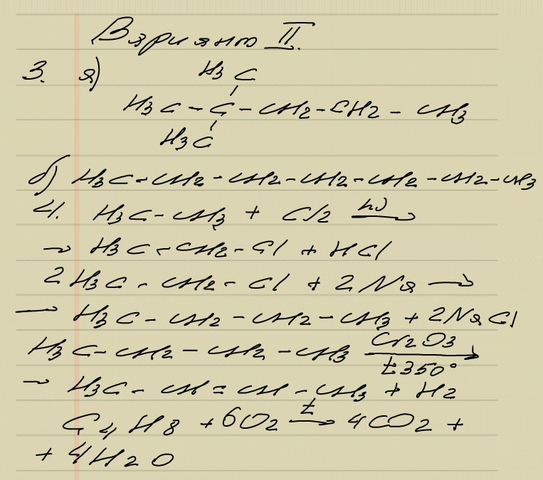 Вариант II.
3. а) H3C
H3C - C - CH2 - CH2 - CH3
H3C
б) H3C - CH2 - CH2 - CH2 - CH2 - CH2 - CH3
4. H3C - CH3 + Cl2 hν→
→ H3C - CH2 - Cl + HCl
2H3C - CH2 - Cl + 2Na →
→ H3C - CH2 - CH2 - CH3 + 2NaCl
H3C - CH2 - CH2 - CH3 Cr2O3 t350° →
→ H3C - CH = CH - CH3 + H2
C4H8 + 6O2 t→ 4CO2 +
+ 4H2O